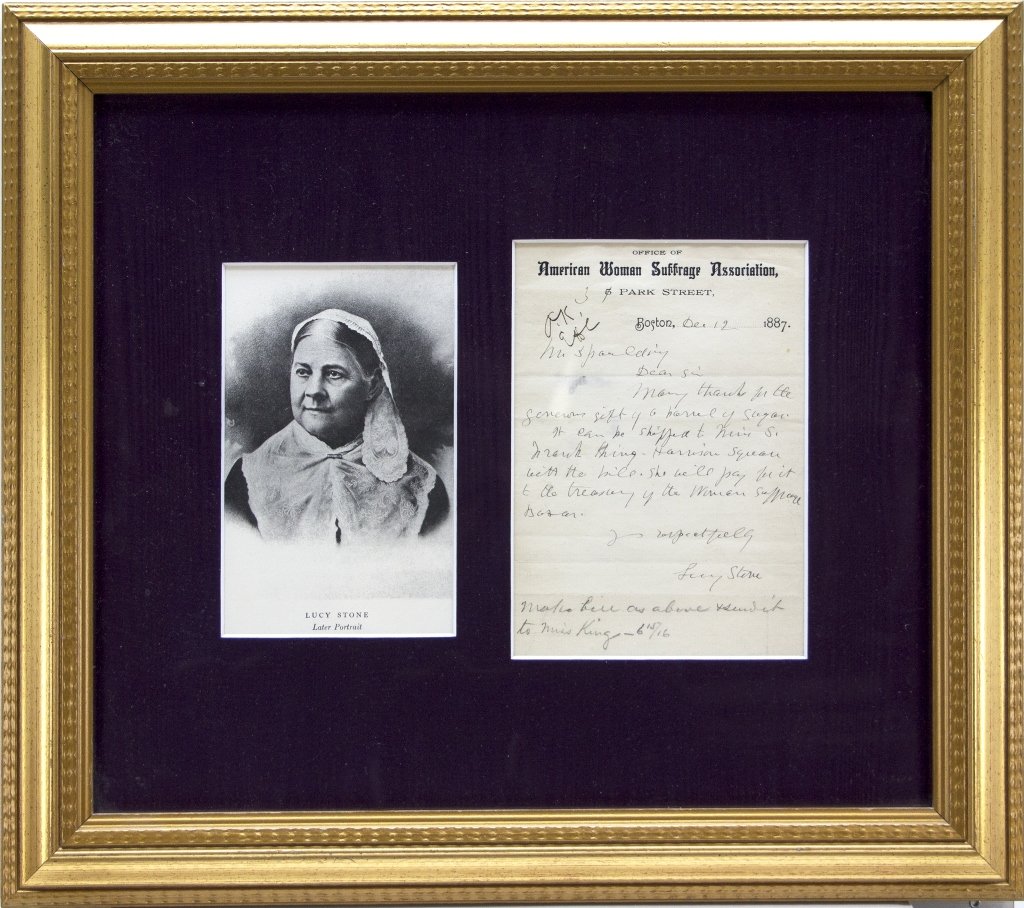 LUCY STONE
Later Portrait
OFFICE OF
American Woman Suffrage Association,
3 PARK STREET,
Boston, Dec 12 1887.
Mr Spaulding
Dear Sir
Many thanks for the
generous gift of a barrel of sugar.
It can be shipped to Miss S.
Frank King. Harrison Square
with the bill. She will pay for it
to the treasury of the Woman Suffrage
Bazar.
respectfully
Lucy Stone
Make bill as above & send it
to Miss King - 6 15/16